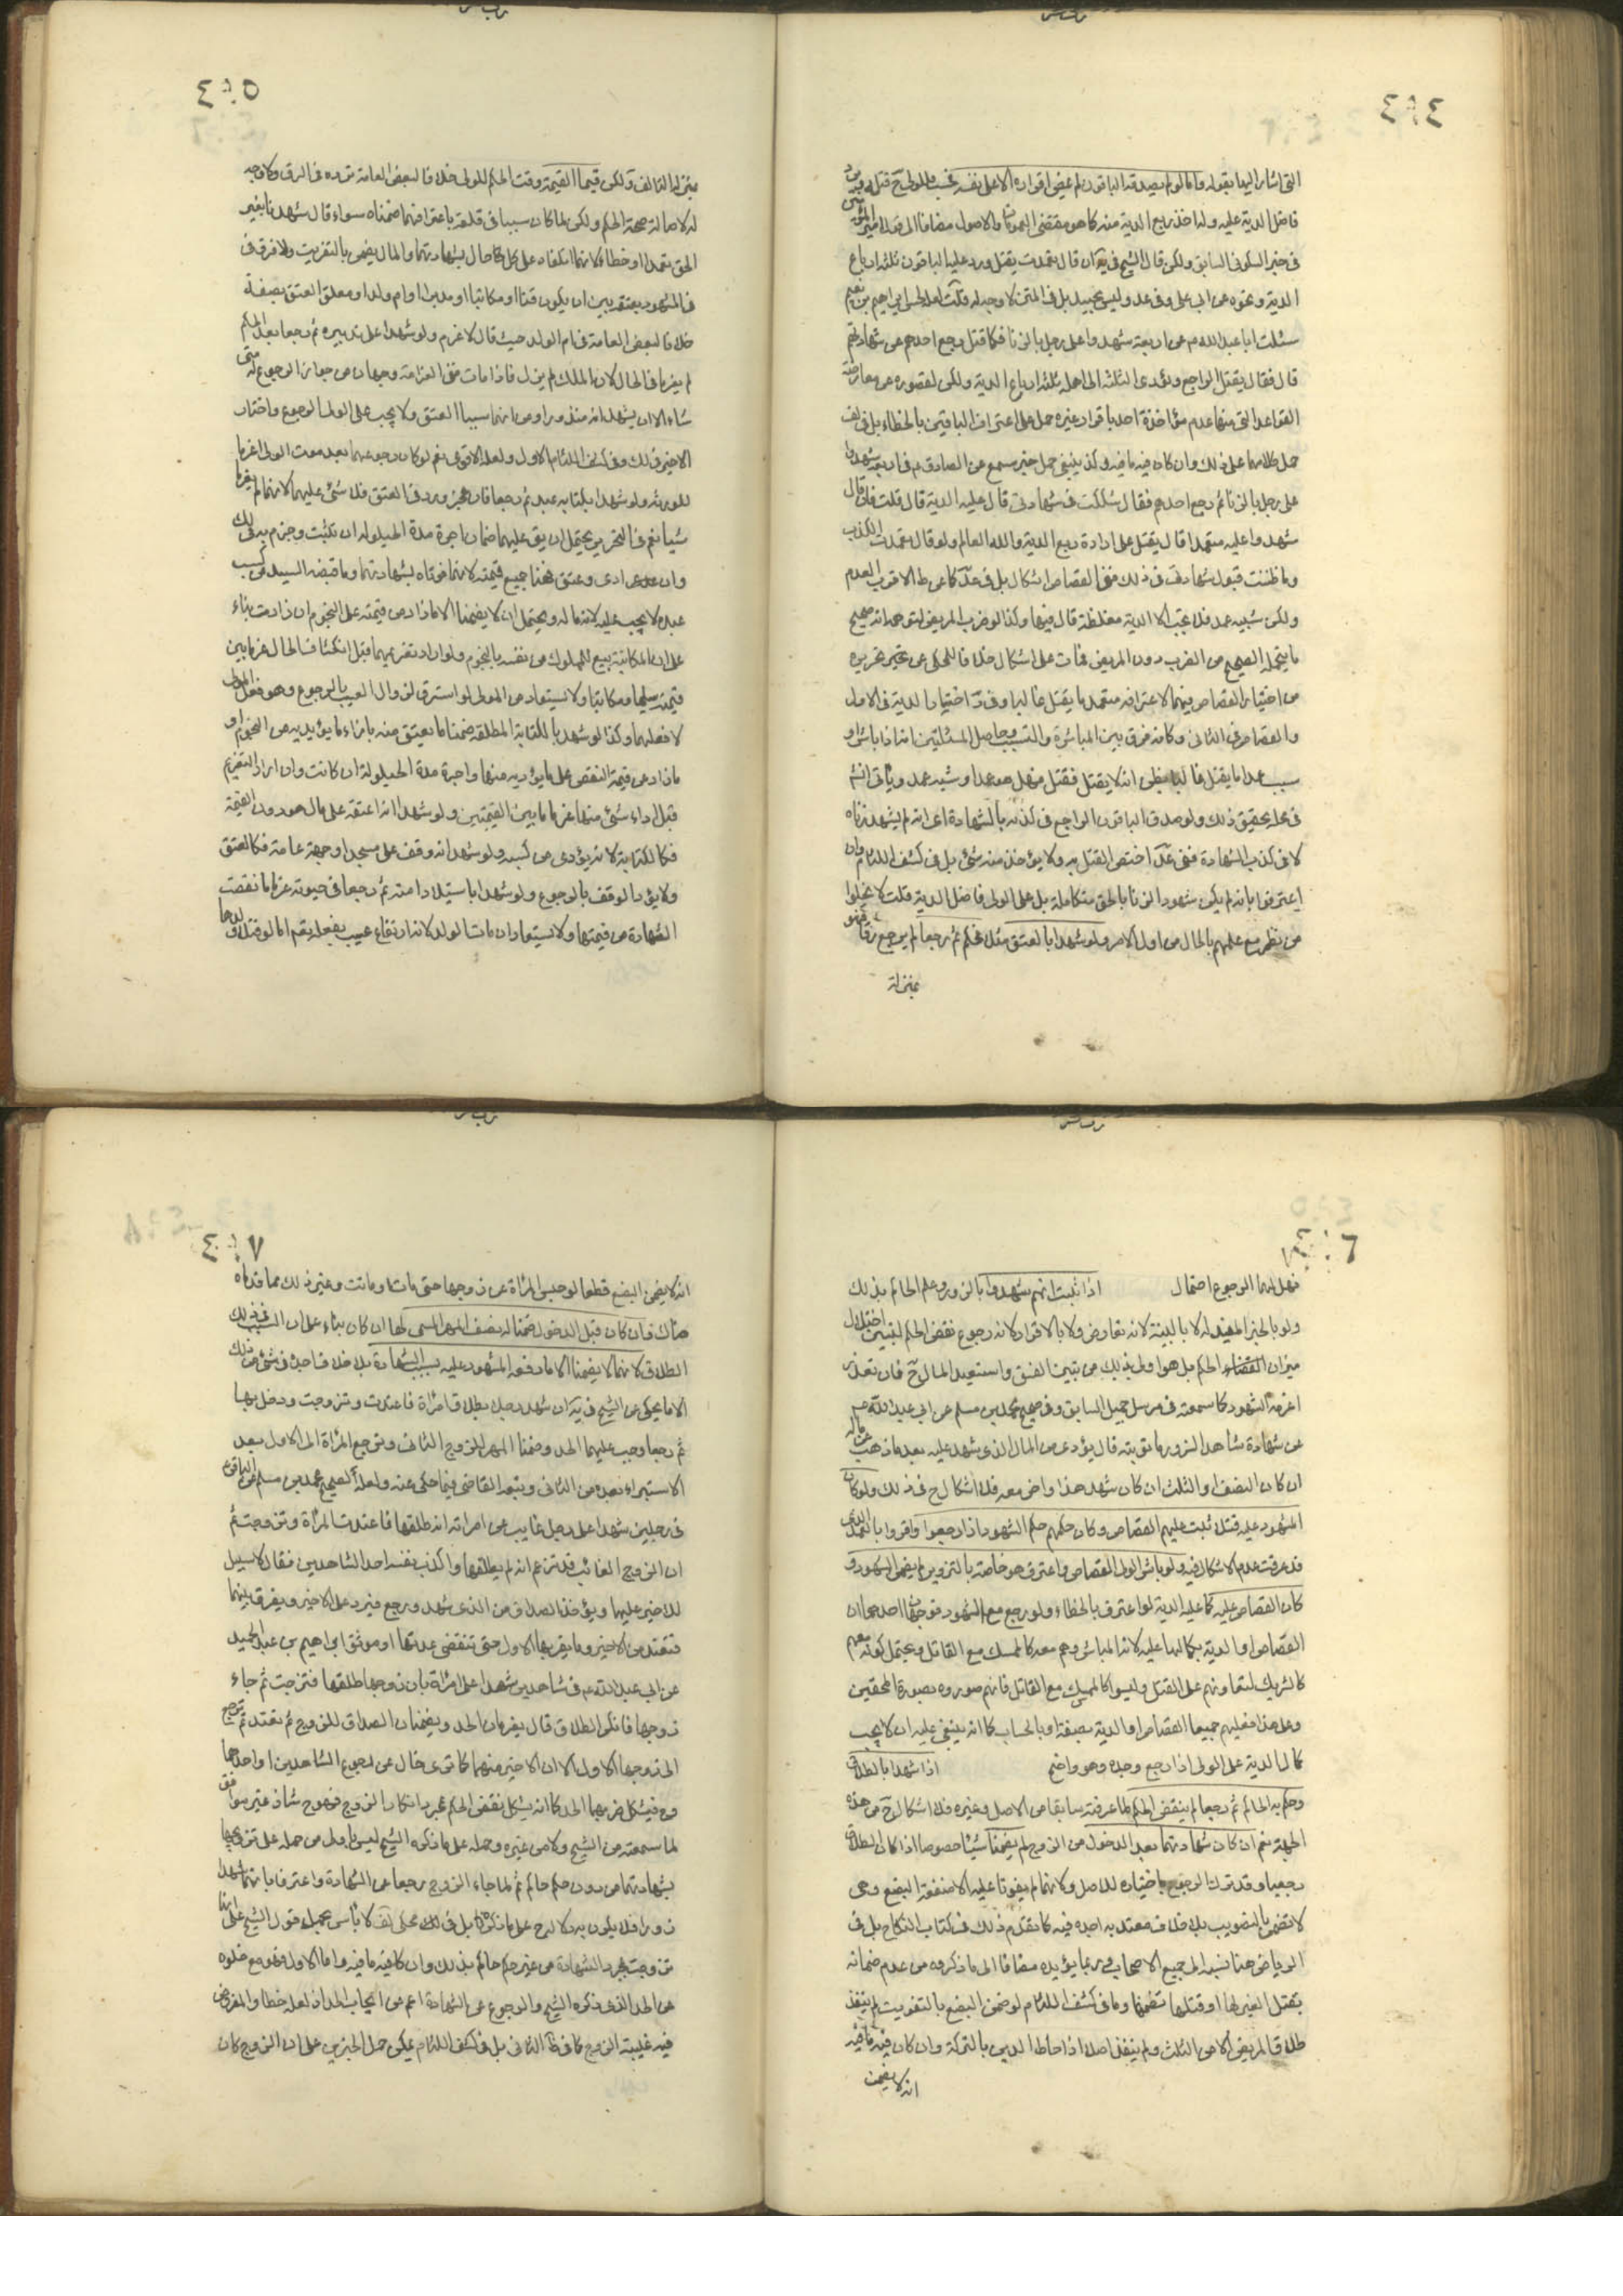 ٤٠٤
التى اشار اليها بقوله واما لو لم يصدقه الباقون لم يمض اقراره الا على نفسه فحسب وللولى ح قتله ويرد
فاضل الدية عليه وله اخذ ربع الدية منه كما هو مقتضى العمومات والاصول مضافا الى
فى خبر السكونى السابق ولكن قال الشيخ فى ية ان قال تعمدت يقتل ورد عليه الباقون ثلثة ارباع
الدية ونحوه عن ابى على وفى عد وليس بجيد بل فى المتن لا وجه له قلت لعله لحسن ابراهيم بن نعيم
سئلت ابا عبد الله ع عن اربعة شهدوا على رجل بالزنا فلما قتل رجع احدهم عن شهادته
قال فقال يقتل الراجع ويؤدى الثلثة الى اهله ثلثة ارباع الدية ولكن لقصوره عن معارضة
القواعد التى منها عدم مؤاخذة احد باقرار غيره حمل على اعتراف الباقين بالخطاء بل فى لف
حمل كلامهما على ذلك وان كان فيه ما فيه وكذ ينبغى حمل خبر مسمع عن الصادق ع فى اربعة شهدوا
على رجل بالزنا ثم رجع احدهم فقال شككت فى شهادتى قال عليه الدية قال قلت فان قال
شهدوا عليه متعمدا قال يقتل على ارادة ربع الدية والله العالم ولو قال تعمدت الكذب
وما ظننت قبول شهادتى فى ذلك ففى القصاص اشكال بل فى عد كما عن ط الاقرب العدم
ولكن شبيه عمد فلا يجب الا الدية مغلظة قال فيها وكذا لو ضرب المريض لتوهمه انه صحيح
ما يتحمله الصحيح من الضرب دون المريض فمات على اشكال خلافا للمحكى عن تحريره
من اختيار القصاص فيهما لاعترافه بتعمد ما يقتل غالبا وفى د اختيار الدية فى الاول
والقصاص فى الثانى وكانه فرق بين المباشرة والتسبيب وحاصل المسئلتين انه اذا باشر او
سبب عمدا ما يقتل غالبا بظن انه لا يقتل فقتل فهل هو عمد او شبه عمد ويأتى انش
فى محله تحقيق ذلك ولو صدق الباقون الراجع فى كذبه بالشهادة اى انه لم يشهد زناه
لا فى كذب الشهادة ففى عد اختص القتل به ولا يؤخذ منه شئ بل فى كشف اللثام وان
اعترفوا بانه لم يكن شهود الزنا بالحق متكاملة بل على الولى فاضل الدية قلت لا يخلوا
من نظر مع علمهم بالحال من اول الامر ولو شهدا بالعتق مثلا فحكم ثم رجعا لم يرجع رقا
بمنزلة
٤٠٥
بمنزلة التالف ولكن قيمه القيمة وقت الحكم للمولى خلافا لبعض العامة فرده فى الرق ولا وجه
له لاصالة صحة الحكم ولكن لما كان سببا فى تلفه باعترافهما ضمناه سواء قال شهدنا بغير
الحق تعمدا او خطاء لانهما اتلفاه على كل حال بشهادتهما والمال يضمن بالتفويت ولا فرق فى
فى المشهود بعتقه بين ان يكون قنا او مكاتبا او مدبرا او ام ولد او معلق العتق بصفة
خلافا لبعض العامة فى ام الولد حيث قال لا غرم ولو شهدا على تدبيره ثم رجعا بعد الحكم
لم يغرما فى الحال لان الملك لم يزل فاذا مات ففى الغرامة وجهان من جواز الرجوع له متى
شاء الا ان يشهد انه منذور او من انهما سببا العتق ولا يجب على المولى الرجوع واختار
الاخير فى لك وفى كشف اللثام الاول ولعله الاقوى نعم لو كان رجوعهما بعد موت المولى اغرما
للورثة ولو شهدا بكتابة عبد ثم رجعا فان عجز ورد فى العتق فلا شئ عليهما لانهما لم يفوتا
شيئا نعم فى التحرير يحتمل ان يق عليهما ضمان اجرة مدة الحيلولة ان تثبت وجزم به فى لك
وان ادى وعتق ضمنا جميع قيمته لانهما فوتاه بشهادتهما وما قبضه السيد من كسب
عبده لا يجب عليه لانه ماله ويحتمل ان لا يضمنا الا ما زاد من قيمته على النجوم ان زادت بناء
على ان المكاتبة بيع للمملوك من نفسه بالنجوم ولو اراد تغريمهما قبل انكشاف الحال غرما بين
قيمته سليما ومكاتبا ولا يستعاد من المولى لو استرق لزوال العيب بالرجوع وهو فعل المولى
لا فعلهما وكذا لو شهد بالكتابة المطلقة ضمنا ما يعتق منه بازاء ما يؤديه من النجوم او
ما زاد من قيمة النقص على ما يؤديه منها واجرة مدة الحيلولة ان كانت وان اراد التغريم
قبل اداء شئ منها غرما ما بين القيمتين ولو شهد انه اعتقه على مال هو دون القيمة
فكالكتابة لانه يؤدى من كسبه ولو شهد انه وقف على مسجد او جهة عامة فكالعتق
ولا يؤد بالوقف بالرجوع ولو شهدا باستيلاد امته ثم رجعا فى حيوته غرما ما نقصت
الشهادة من قيمتها ولا يستعاد ان مات الولد لانه ارتفاع عيب بفعله تعم اما لو قتل ولدها
٤٠٦
فهل لهما الرجوع احتمال اذا ثبت انهم شهدوا بالزور وعلم الحاكم بذلك
ولو بالخبر المفيد له لا بالبينة لانه تعارض ولا بالاقرار لانه رجوع نقض الحكم لتبين اختلال
ميزان القضاء الحكم بل هو اولى بذلك من تبين الفسق واستعيد المال ح فان تعذر
اغرمه الشهود كما سمعته فى مرسل جميل السابق وفى صحيح محمد بن مسلم عن ابى عبد الله ع
عن شهادة شاهد الزور ما توبته قال يؤدى من المال الذى شهد عليه بقدر ما ذهب من ماله
ان كان النصف او الثلث ان كان شهد هذا واخر معه فلا اشكال ح فى ذلك ولو كان
المشهود عليه قتلا ثبت عليهم القصاص وكان حكمهم حكم الشهود اذا رجعوا واقروا بالتعمد الذى
قد عرفت عدم الاشكال فيه ولو باشر الولى القصاص واعترف هو خاصة بالتزوير لم يضمن الشهود و
كان القصاص عليه كما عليه الدية لو اعترف بالخطاء ولو رجع مع الشهود فوجهان احدهما ان
القصاص او الدية بكمالها عليه لانه المباشر وهم معه كالممسك مع القاتل ويحتمل كونه معهم
كالشريك لتعاونهم على القتل وليسوا كالممسك مع القاتل فانهم صوروه بصورة المحقين
وعلى هذا فعليهم جميعا القصاص او الدية بصفة او بالحساب كما انه ينبغى عليه ان لا يجب
كمال الدية على الولى اذا رجع وحده وهو واضح اذا شهدا بالطلاق
وحكم به الحاكم ثم رجعا لم ينقض الحكم لما عرفته سابقا من الاصل وغيره فلا اشكال ح من هذه
الجهة نعم ان كان شهادتهما بعد الدخول من الزوج لم يضمنا شيئا خصوصا اذا كان الطلاق
رجعيا وقد ترك الرجوع باختياره للاصل ولانهما لم يفوتا عليه الا منفعة البضع وهى
لا تضمن بالتفويت بلا خلاف معتد به اجده فيه كما تقدم ذلك فى كتاب النكاح بل فى
الرياض هنا نسبه الى جميع الاصحاب وربما يؤيده مضافا الى ما ذكروه من عدم ضمانه
بقتل الغير لها او قتلها نفسها وما فى كشف اللثام لو ضمن البضع بالتفويت لم ينفذ
طلاق المريض الا من الثلث ولم ينفذ اصلا اذا احاط الدين بالتركة وان كان فيه ما فيه
انه لا يضمن
٤٠٧
انه لا يضمن البضع قطعا لو حبس المرأة عن زوجها حتى مات او ماتت وغير ذلك مما قدمناه
هناك فان كان قبل الدخول ضمنا له نصف المهر المسمى لها ان كان بناء على ان السبب فى ذلك
الطلاق لانهما لا يضمنا الا ما دفعه المشهود عليه بسبب الشهادة بلا خلاف اجده فى شئ من ذلك
الا ما يحكى عن الشيخ فى ية ان شهد رجلا بطلاق امرأة فاعتدت وتزوجت ودخل بها
ثم رجعا وجب عليهما الحد وضمنا المهر للزوج الثانى وترجع المرأة الى الاول بعد
الاستبراء بعده من الثانى وتبعه القاضى فيما حكى عنه ولعله لصحيح محمد بن مسلم عن الباقر ع
فى رجلين شهدا على رجل غايب عن امراته انه طلقها فاعتدت المرأة وتزوجت ثم
ان الزوج الغائب قد تزعم انه لم يطلقها واكذب نفسه احد الشاهدين فقال لا سبيل
للاخير عليها ويؤخذ الصداق من الذى شهد ورجع فيرد على الاخير ويفرق بينهما
فتعتد من الاخير وما يقربها الاول حتى تنقضى عدتها او موثق ابراهيم بن عبد الحميد
عن ابى عبد الله ع فى شاهدين شهدا على امرأة بان زوجها طلقها فتزوجت ثم جاء
زوجها فانكر الطلاق قال يضربان الحد ويضمنان الصداق للزوج ثم تعتد ثم ترجع
الى زوجها الاول الا ان الاخير منهما كما ترى خال عن رجوع الشاهدين او احدهما
وح فيشكل ضربهما الحد كما انه يشكل نقض الحكم بمجرد انكار الزوج فهو ح شاذ غير موافق
لما سمعته من الشيخ ولا من غيره وحمله على ما ذكره الشيخ ليس باولى من حمله على تزويجها
بشهادتهما من دون حكم حاكم ثم لما جاء الزوج رجعا عن الشهادة واعترفا بانهما شهدا
زورا فلا يكون به دلالة ح على ما ذكره بل فى لك محكى لف لا باس بحمل قول الشيخ على انها
تزوجت بمجرد الشهادة من غير حكم حاكم بذلك وان كان فيه ما فيه واما الاول فهو مع خلوه
عن الحد الذى ذكره الشيخ والرجوع عن الشهادة اعم من ايجاب الحد اذ لعله خطأ والمفروض
فيه غيبة الزوج كالثانى بل فى كشف اللثام يمكن حمل الخبرين على ان الزوج كان